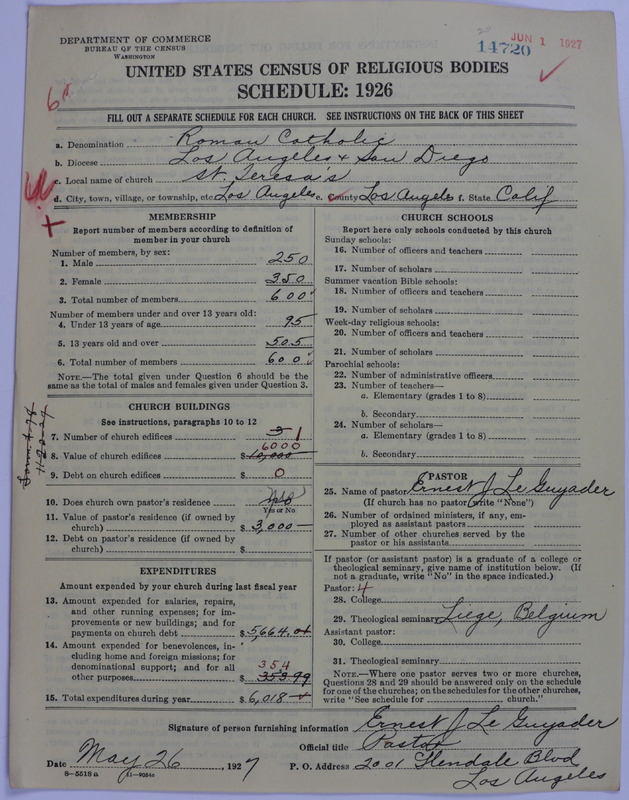 DEPARTMENT OF COMMERCE
BUREAU OF THE CENSUS
WASHINGTON
14720
JUN 1 1927
UNITED STATES CENSUS OF RELIGIOUS BODIES
SCHEDULE: 1926
FILL OUT A SEPARATE SCHEDULE FOR EACH CHURCH. SEE INSTRUCTIONS ON THE BACK OF THIS SHEET
a. Denomination Roman Catholic
b. Diocese Los Angeles & San Diego
c. Local name of church St. Teresa's
d. City, town, village, or township, etc. Los Angeles e. County Los Angeles f. State Calif
MEMBERSHIP
Report number of members according to definition of
member in your church
Number of members, by sex:
1. Male 250
2. Female 350
3. Total number of members 600
Number of members under and over 13 years old:
4. Under 13 years of age 95
5. 13 years old and over 505
6. Total number of members 600
NOTE.—The total given under Question 6 should be
same as the total of males and females given under Question 3.
CHURCH BUILDINGS
See instructions, paragraphs 10 to 12
7. Number of church edifices 3 1
6000
8. Value of church edifices $10,000
9. Debt on church edifices $ 0
10. Does church own pastor's residence
Yes or No
11. Value of pastor's residence (if owned by
church) $3,000
12. Debt on pastor's residence (if owned by
church) $
EXPENDITURES
Amount expended by your church during last fiscal year
13. Amount expended for salaries, repairs,
and other running expenses; for im-
provements or new buildings; and for
payments on church debt $5,664.01
14. Amount expended for benevolences, in-
cluding home and foreign missions; for
denominational support; and for all
other purposes $353.99
354
15. Total expenditures during year $6,018
CHURCH SCHOOLS
Report here only schools conducted by this church
Sunday schools:
16. Number of officers and teachers
17. Number of scholars
Summer vacation Bible schools:
18. Number of officers and teachers
19. Number of scholars
Week-day religious schools:
20. Number of officers and teachers
21. Number of scholars
Parochial schools:
22. Number of administrative officers
23. Number of teachers—
a. Elementary (grades 1 to 8)
b. Secondary
24. Number of scholars—
a. Elementary (grades 1 to 8)
b. Secondary
PASTOR
25. Name of pastor Ernest J Le Guyader
(If church has no pastor, write "None")
26. Number of ordained ministers, if any, em-
ployed as assistant pastors
27. Number of other churches served by the
pastor or his assistants
If pastor (or assistant pastor) is a graduate of a college or
theological seminary, give name of institution below. (If
not a graduate, write "No" in the space indicated.)
Pastor: 4
28. College
29. Theological seminary Liege, Belgium
Assistant pastor:
30. College
31. Theological seminary
NOTE.—Where one pastor serves two or more churches,
Questions 28 and 29 should be answered only on the schedule
for one of the churches; on the schedules for the other churches,
write "See schedule for church."
Signature of person furnishing information Ernest J Le Guyader
Official title Pastor
Date May 26, 1927 P. O. Address 2001 Glendale Blvd
Los Angeles
8-5518 a